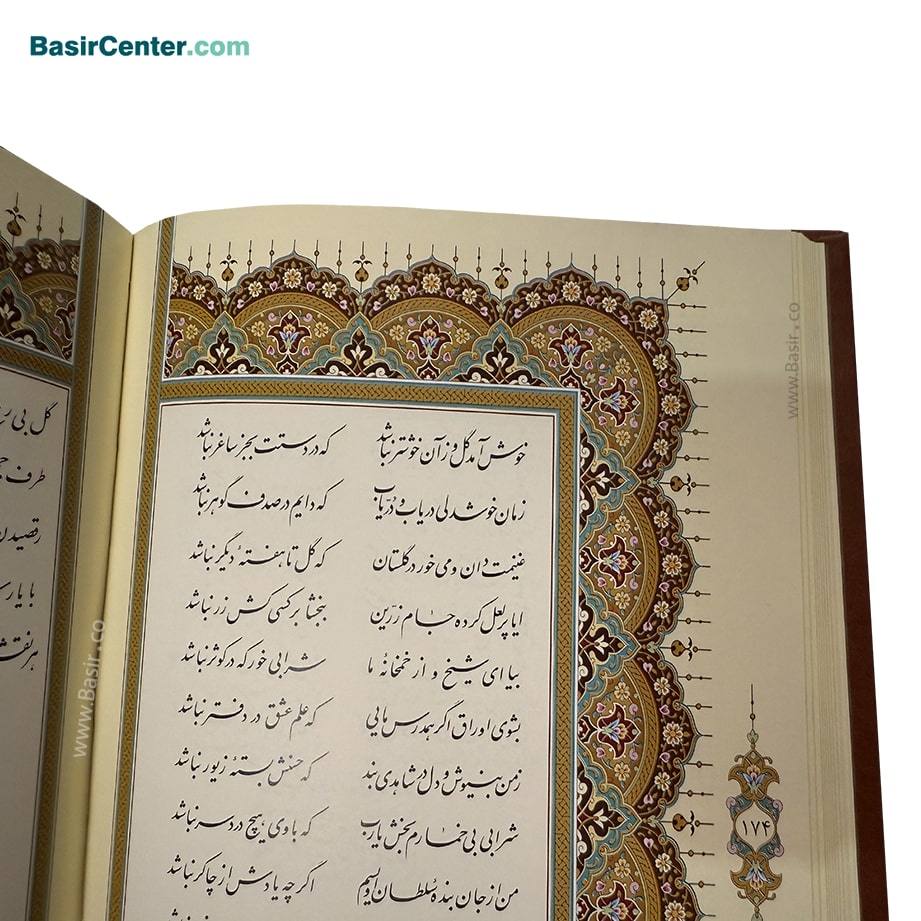 BasirCenter.com
خوش آمد گل وز آن خوشتر نباشد که در دستت بجز ساغر نباشد
زمان خوشدلی دریاب و دُریاب که دایم در صدف گوهر نباشد
غنیمت دان و می خور در گلستان که گل تا هفتهٔ دیگر نباشد
ایا پر لعل کرده جام زرّین ببخشا بر کسی کش زر نباشد
بیا ای شیخ و از خمخانهٔ ما شرابی خور که در کوثر نباشد
بشوی اوراق اگر همدرس مایی که علم عشق در دفتر نباشد
زمن بنیوش و دل در شاهدی بند که حسنش بستهٔ زیور نباشد
شرابی بی خمارم بخش یارب که با وی هیچ درد سر نباشد
من از جان بندهٔ سلطان اویسم اگر چه یادش از چاکر نباشد
۱۷۴
گل بی
طرف
با یار
www.Basir.co
www.Basir.co